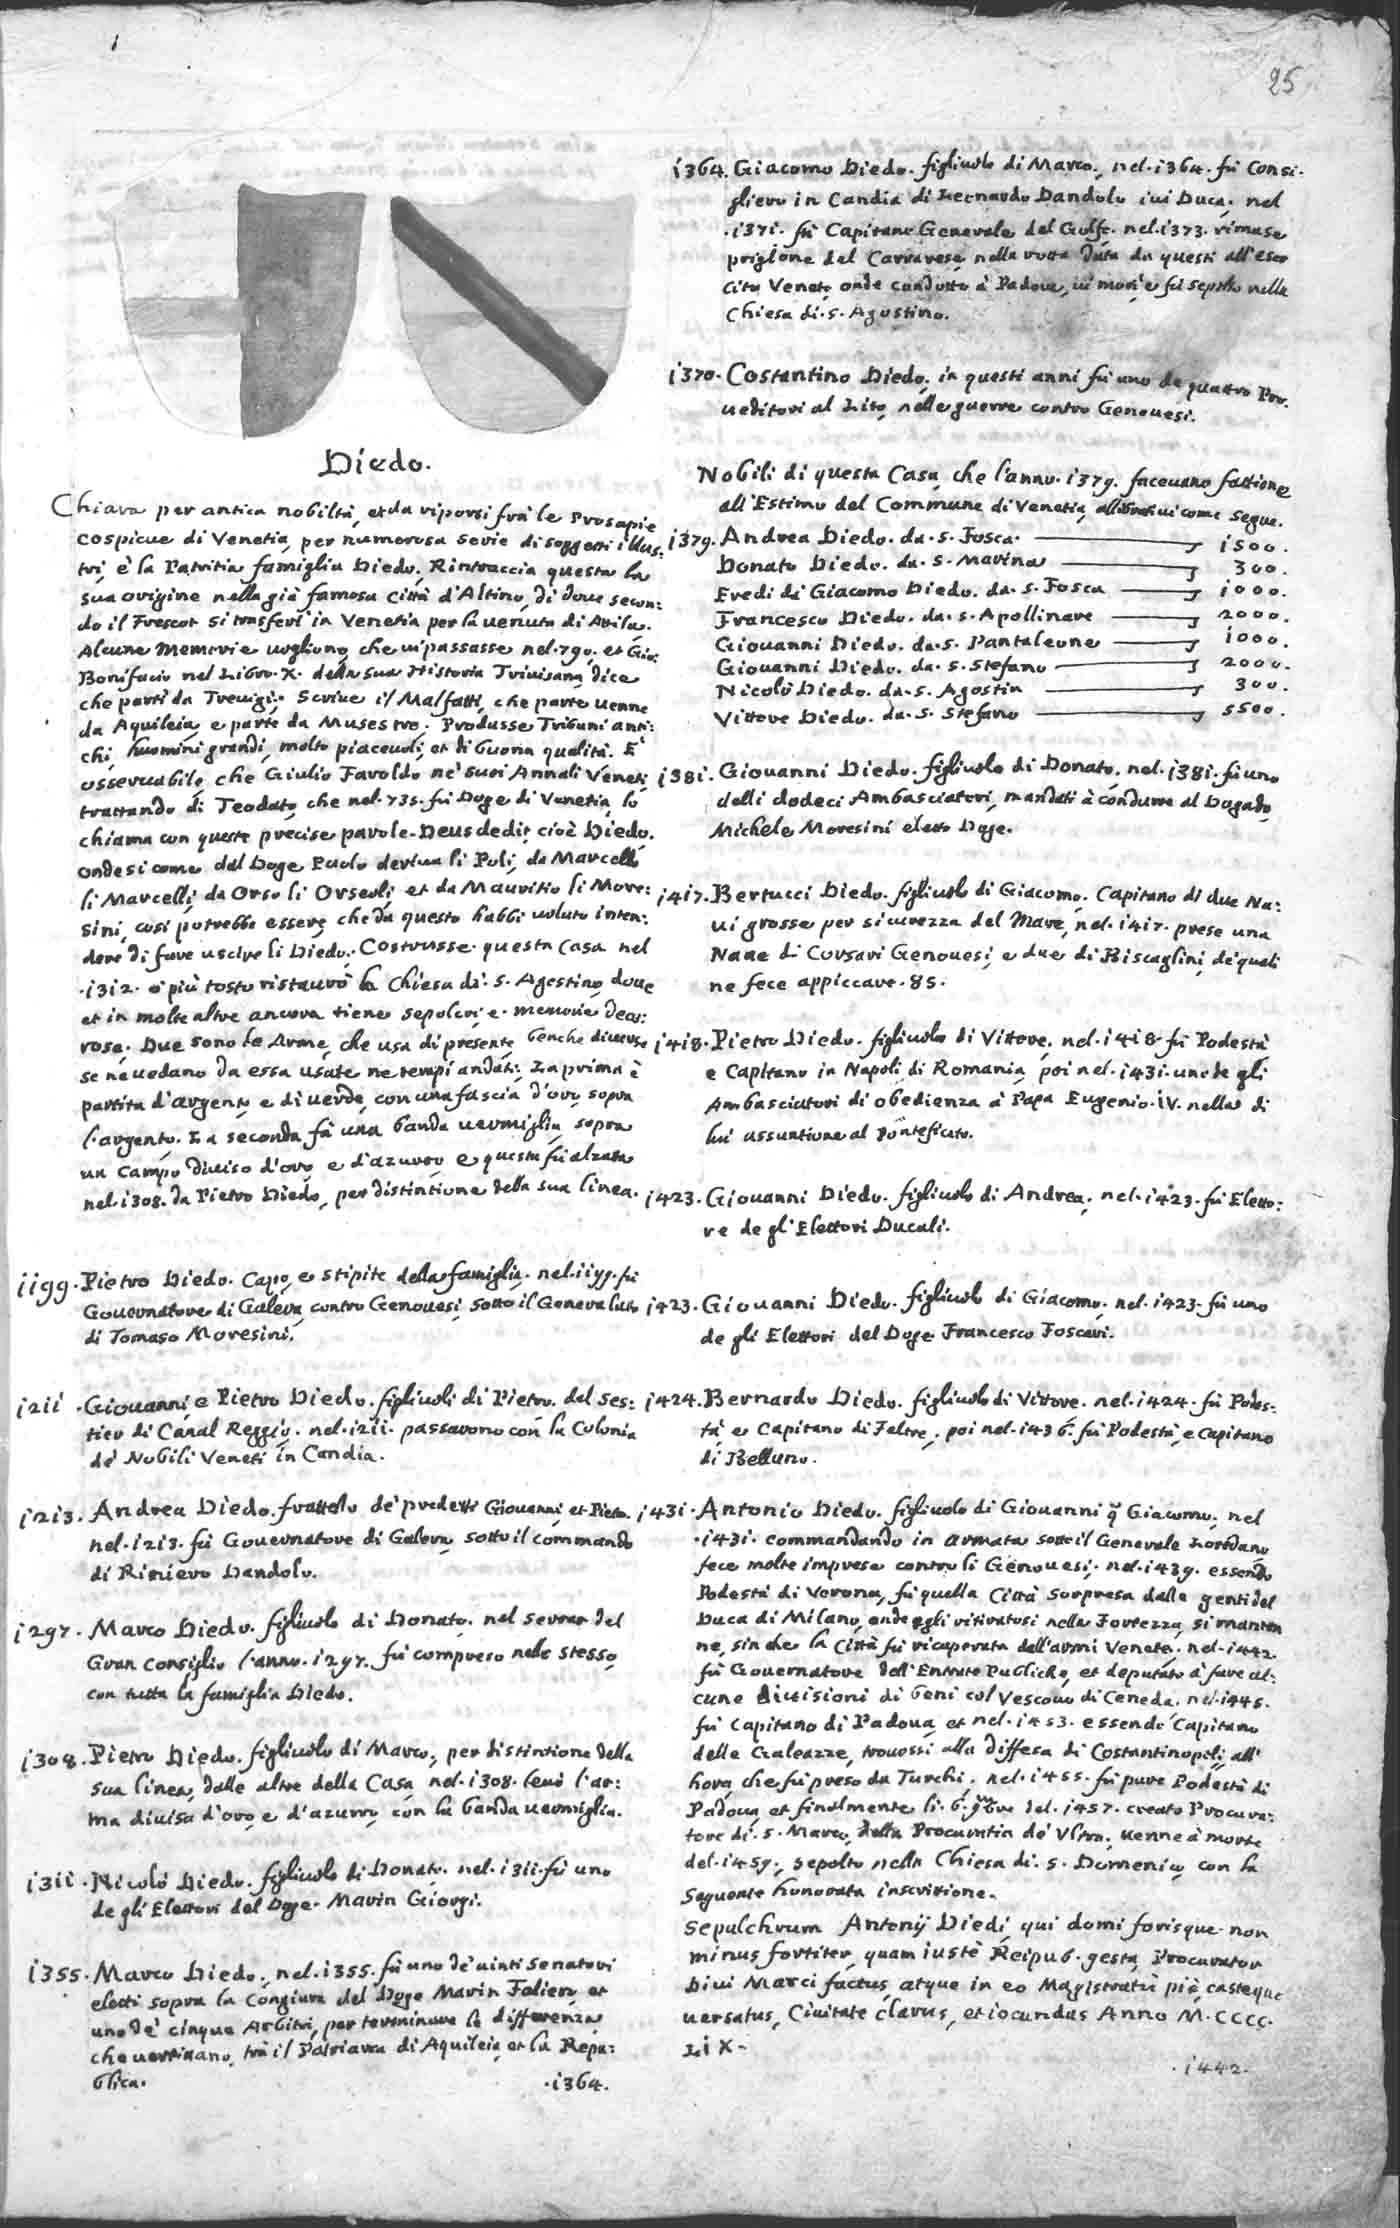 25
Diedo.
Chiara per antica nobiltà, et da riporsi frà le Prosapie
cospicue di Venetia, per numerosa serie di soggetti illus:
tri, è la Patritia famiglia Diedo. Rintraccia questa la
sua origine nella già famosa Città d'Altino, di doue secon:
do il Frescot si trasferì in Venetia per la uenuta di Attila.
Alcune Memorie uogliono, che ui passasse nel. 790. et Gio:
Bonifacio nel Libro. X. della sua Historia Triuisana, dice
che partì da Treuigi. Scriue il Malfatti, che parte uenne
da Aquileia, e parte da Musestro. Produsse Tribuni anti:
chi, huomini grandi, molto piaceuoli, et di buona qualità. E'
osseruabile, che Giulio Faroldo ne' suoi Annali Veneti,
trattando di Teodato, che nel. 735. fù Doge di Venetia, lo
chiama con queste precise parole. Deusdedit, cioè Diedo.
onde si come dal Doge Paolo deriua li Poli, da Marcello
li Marcelli, da Orso li Orseoli, et da Mauritio li More:
sini, così potrebbe essere, che da questo habbi uoluto inten:
dere di fare uscire li Diedo. Costrusse questa Casa nel
.i3i2. ò più tosto ristaurò la Chiesa di. S. Agostino, doue
et in molte altre ancora tiene sepolcri, e memorie deco:
rose. Due sono le Arme, che usa di presente, benche diuerse
se ne uedano da essa usate ne tempi andati. La prima è
partita d'argento e di uerde, con una fascia d'oro, sopra
l'argento. La seconda fà una banda uermiglia, sopra
un Campo diuiso d'oro, e d'azurro, e questa fù alzata
nel. i308. da Pietro Diedo, per distintione della sua linea.
ii99. Pietro Diedo. Capo, e stipite della famiglia. nel. ii99. fù
Gouernatore di Galera, contro Genouesi, sotto il Generalato
di Tomaso Moresini.
i2ii. Giouanni e Pietro Diedo. figliuoli di Pietro. del Ses:
tier di Canal Reggio. nel. i2ii. passarono con la Colonia
de' Nobili Veneti in Candia.
i2i3. Andrea Diedo. frattello de' predetti Giouanni, et Pietro.
nel. i2i3. fù Gouernatore di Galera, sotto il commando
di Riniero Dandolo.
i297. Marco Diedo. figliuolo di Donato. nel serrar del
Gran Consiglio l'anno. i297. fù compreso nello stesso,
con tutta la famiglia Diedo.
i308. Pietro Diedo. figliuolo di Marco, per distintione della
sua linea, dalle altre della Casa, nel. i308. leuò l'ar:
ma diuisa d'oro, e d'azurro, con la banda uermiglia.
i3ii. Nicolò Diedo. figliuolo di Donato. nel. i3ii. fù uno
de gli Elettori del Doge. Marin Giorgi.
i355. Marco Diedo. nel. i355. fù uno de' uinti Senatori
eletti sopra la Congiura del Doge Marin Falier, et
uno de' cinque Arbitri, per terminare le differenze
che uertiuano, trà il Patriarca di Aquileia, et la Repu:
blica.
.i364.
i364. Giacomo Diedo. figliuolo di Marco. nel. i364. fù Consi:
gliero in Candia di Leonardo Dandolo iui Duca. nel
.i37i. fù Capitano Generale del Golfo. nel. i373. rimase
prigione del Carrarese, nella rotta data da questi all'Eser
cito Veneto, onde condotto à Padoua, iui morì, e fù sepolto nella
Chiesa di. S. Agostino.
i370. Costantino Diedo. in questi anni fù uno de quattro Pro:
ueditori al Lito, nelle guerre contro Genouesi.
Nobili di questa Casa, che l'anno. i379. faceuano fattione
all'Estimo del Commune di Venetia, allibrati ui come segue.
i379. Andrea Diedo. da. S. Fosca. i500.
Donato Diedo. da. S. Marina 300.
Eredi di Giacomo Diedo. da. S. Fosca i000.
Francesco Diedo. da. S. Apollinare 2000.
Giouanni Diedo. da. S. Pantaleone i000.
Giouanni Diedo. da. S. Stefano 2000.
Nicolò Diedo. da. S. Agostin 300.
Vittore Diedo. da. S. Stefano 5500.
i38i. Giouanni Diedo. figliuolo di Donato. nel. i38i. fù uno
delli dodeci Ambasciatori, mandati à condurre al Dogado,
Michele Moresini eletto Doge.
i4i7. Bertucci Diedo. figliuolo di Giacomo. Capitano di due Na:
ui grosse per sicurezza del Mare, nel. i4i7. prese una
Naue di Corsari Genouesi, e due di Biscaglini, de' quali
ne fece appiccare. 85.
i4i8. Pietro Diedo. figliuolo di Vittore. nel. i4i8. fù Podestà
e Capitano in Napoli di Romania, poi nel. i43i. uno de gli
Ambasciatori di obedienza à Papa Eugenio. IV. nella di
lui assuntione al Ponteficato.
i423. Giouanni Diedo. figliuolo di Andrea. nel. i423. fù Eletto:
re de gl'Elettori Ducali.
i423. Giouanni Diedo. figliuolo di Giacomo. nel. i423. fù uno
de gli Elettori del Doge Francesco Foscari.
i424. Bernardo Diedo. figliuolo di Vittore. nel. i424. fù Podes:
tà e Capitano di Feltre. poi nel. i436. fù Podestà, e Capitano
di Belluno.
i43i. Antonio Diedo. figliuolo di Giouanni q̃ Giacomo. nel
.i43i. commandando in armata sotto il Generale Loredano
fece molte imprese contro li Genouesi. nel. i439. essendo
Podestà di Verona, fù quella Città sorpresa dalle genti del
Duca di Milano, onde egli ritiratosi nella Fortezza, si manten
ne, sin che la Città fù ricuperata dall'armi Venete. nel. i442.
fù Gouernatore dell'Entrate Publiche, et deputato à fare al:
cune diuisioni di beni col Vescouo di Ceneda. nel. i445.
fù Capitano di Padoua, et nel. i453. essendo Capitano
delle Galeazze, trouossi alla diffesa di Costantinopoli, all'
hora, che fù preso da Turchi. nel. i455. fù pure Podestà di
Padoua, et finalmente li. 6. del. i457. creato Procura:
tore di. S. Marco, della Procuratia de' Vltra, uenne à morte
del. i459. sepolto nella Chiesa di. S. Domenico, con la
seguente honorata inscrittione.
Sepulchrum Antonij Diedi, qui domi forisque non
minus fortiter, quam iustè Reipub. gesta, Procurator
Diui Marci factus, atque in eo Magistratù piè, casteque
uersatus, Ciuitate clarus, et iocundus Anno M.CCCC.
LiX.
.i442.